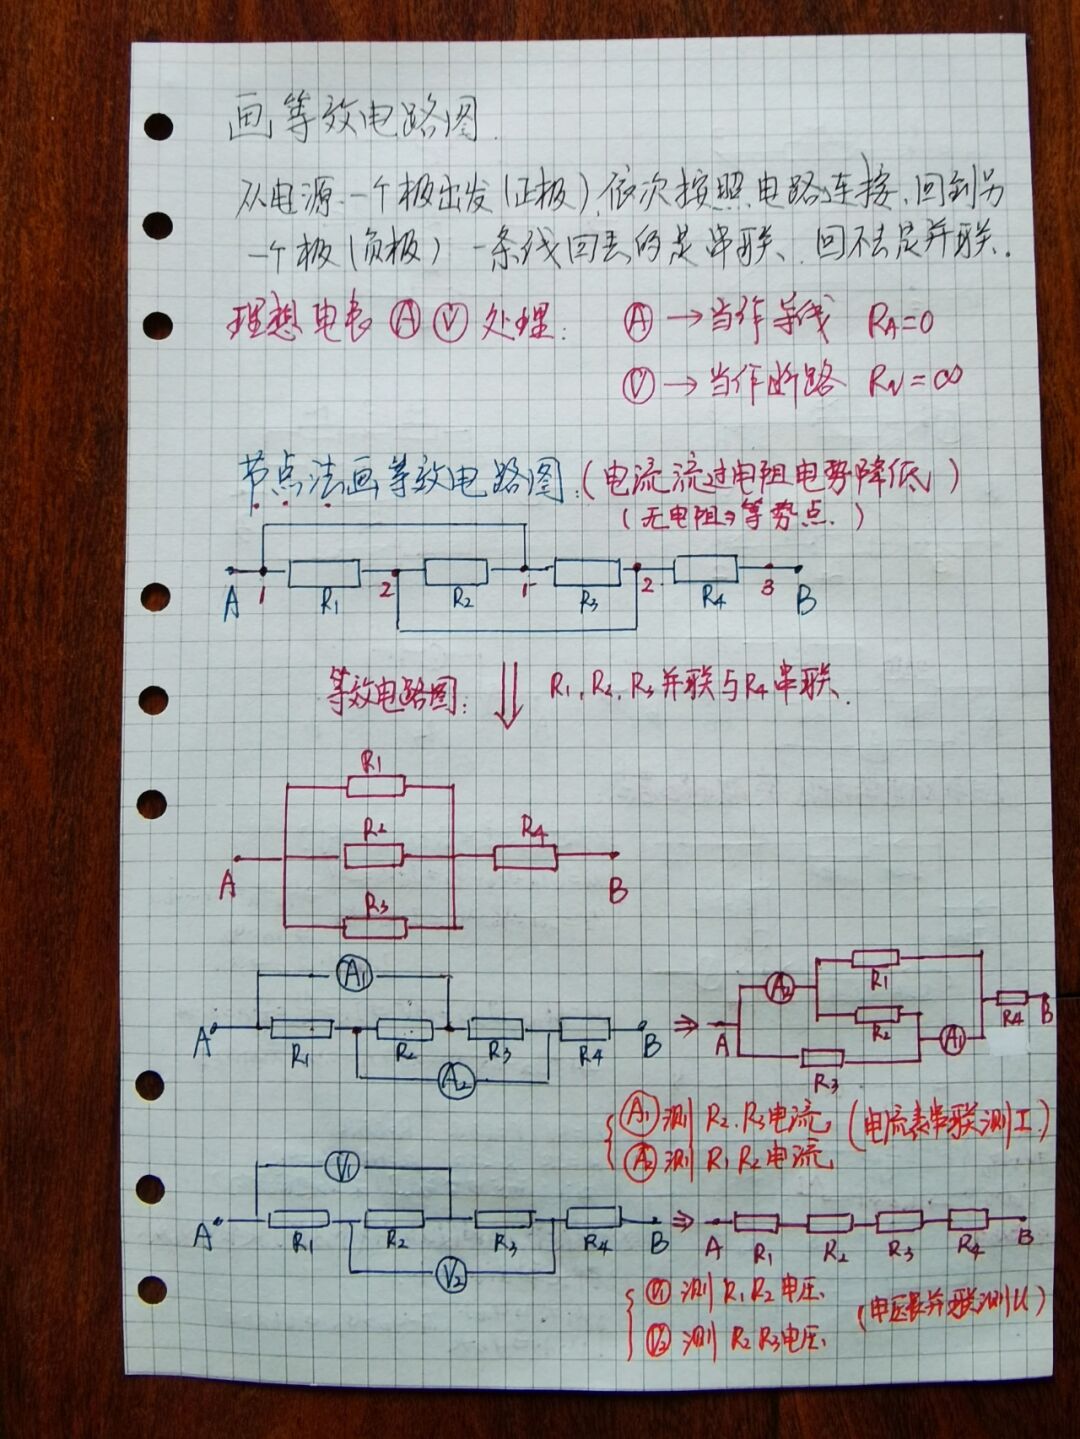 画等效电路图.
从电源一个极出发(正极),依次按照电路连接,回到另
一个极(负极) 一条线回去的是串联、回不去是并联.
理想电表 Ⓐ Ⓥ 处理: Ⓐ → 当作导线 RA=0
Ⓥ → 当作断路 RV=∞
节点法画等效电路图.(电流流过电阻电势降低)
(无电阻⇒等势点.)
A 1 R1 2 R2 1 R3 2 R4 3 B
等效电路图: ⇓ R1, R2, R3 并联与R4 串联.
R1
R2 R4
A B
R3
A1
A R1 R2 R3 R4 B ⇒ A A2 R1 R2 A1 R3 R4 B
A2
{ A1 测 R2. R3 电流 (电流表串联测I.)
A2 测 R1 R2 电流
V1
A R1 R2 R3 R4 B ⇒ A R1 R2 R3 R4 B
V2
{ V1 测 R1 R2 电压. (电压表并联测U)
V2 测 R2 R3 电压.